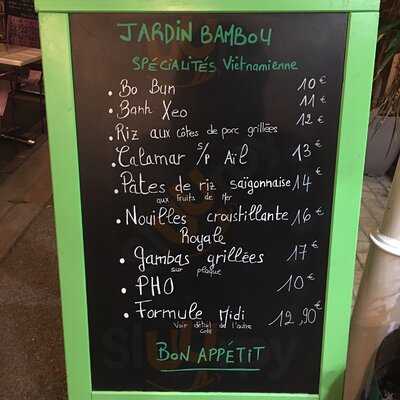 JARDIN BAMBOU
SPÉCIALITÉS Vietnamienne
• Bo Bun 10€
• Banh Xeo 11€
• Riz aux côtes de porc grillées 12€
• Calamar s/p Aïl 13€
• Pâtes de riz saïgonnaise 14€
aux Fruits de Mer
• Nouilles croustillante 16€
Royale
• Gambas grillées 17€
sur plaque
• PHO 10€
• Formule Midi 12,90€
Voir détail de l'autre
coté
BON APPÉTIT